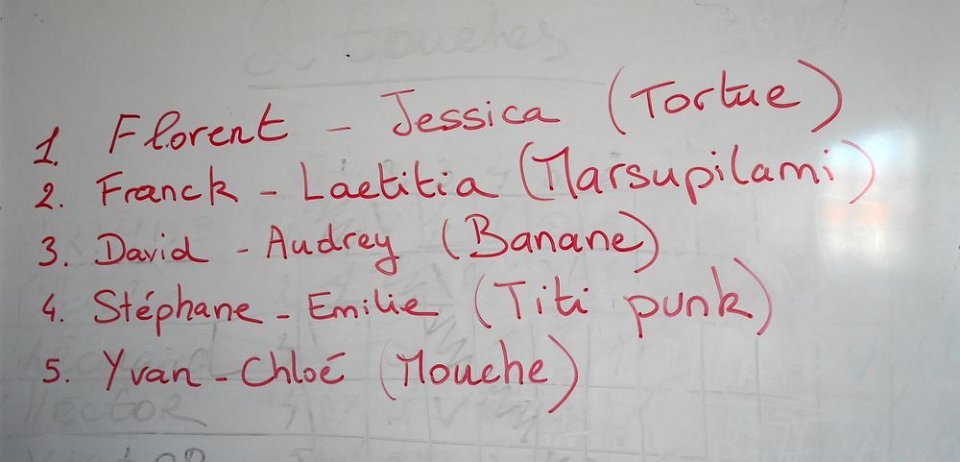 1. Florent - Jessica (Tortue)
2. Franck - Laetitia (Marsupilami)
3. David - Audrey (Banane)
4. Stéphane - Emilie (Titi punk)
5. Yvan - Chloé (Mouche)